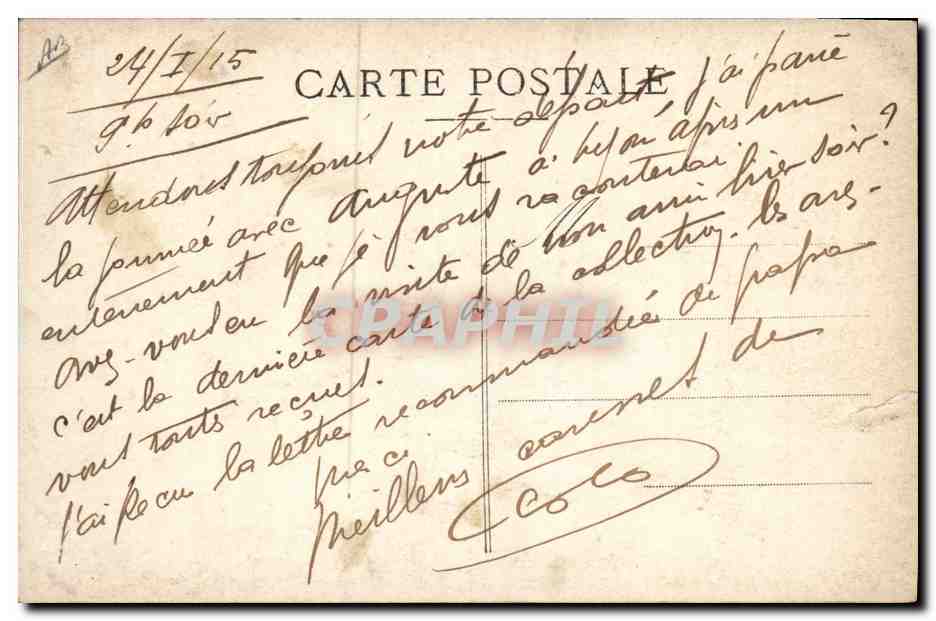 AB
24/I/15
9h soir
CARTE POSTALE
Attendons toujours notre départ, j'ai passé
la journée avec Auguste à après un
enterrement que je vous raconterai.
Avez-vous eu la visite de mon ami hier soir?
c'est la dernière carte de la collection. les avez-
vous toutes reçues.
J'ai Reçu la lettre recommandée de papa
Meillens de
Coco
CPAPHIL